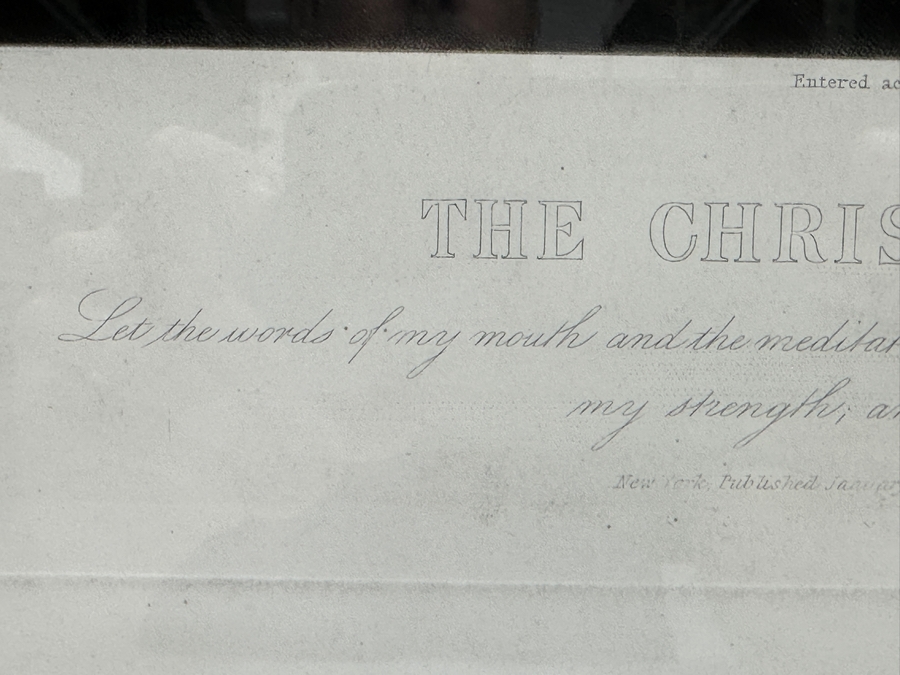 Entered ac
THE CHRIS
Let the words of my mouth and the meditat
my strength; an
New York, Published January